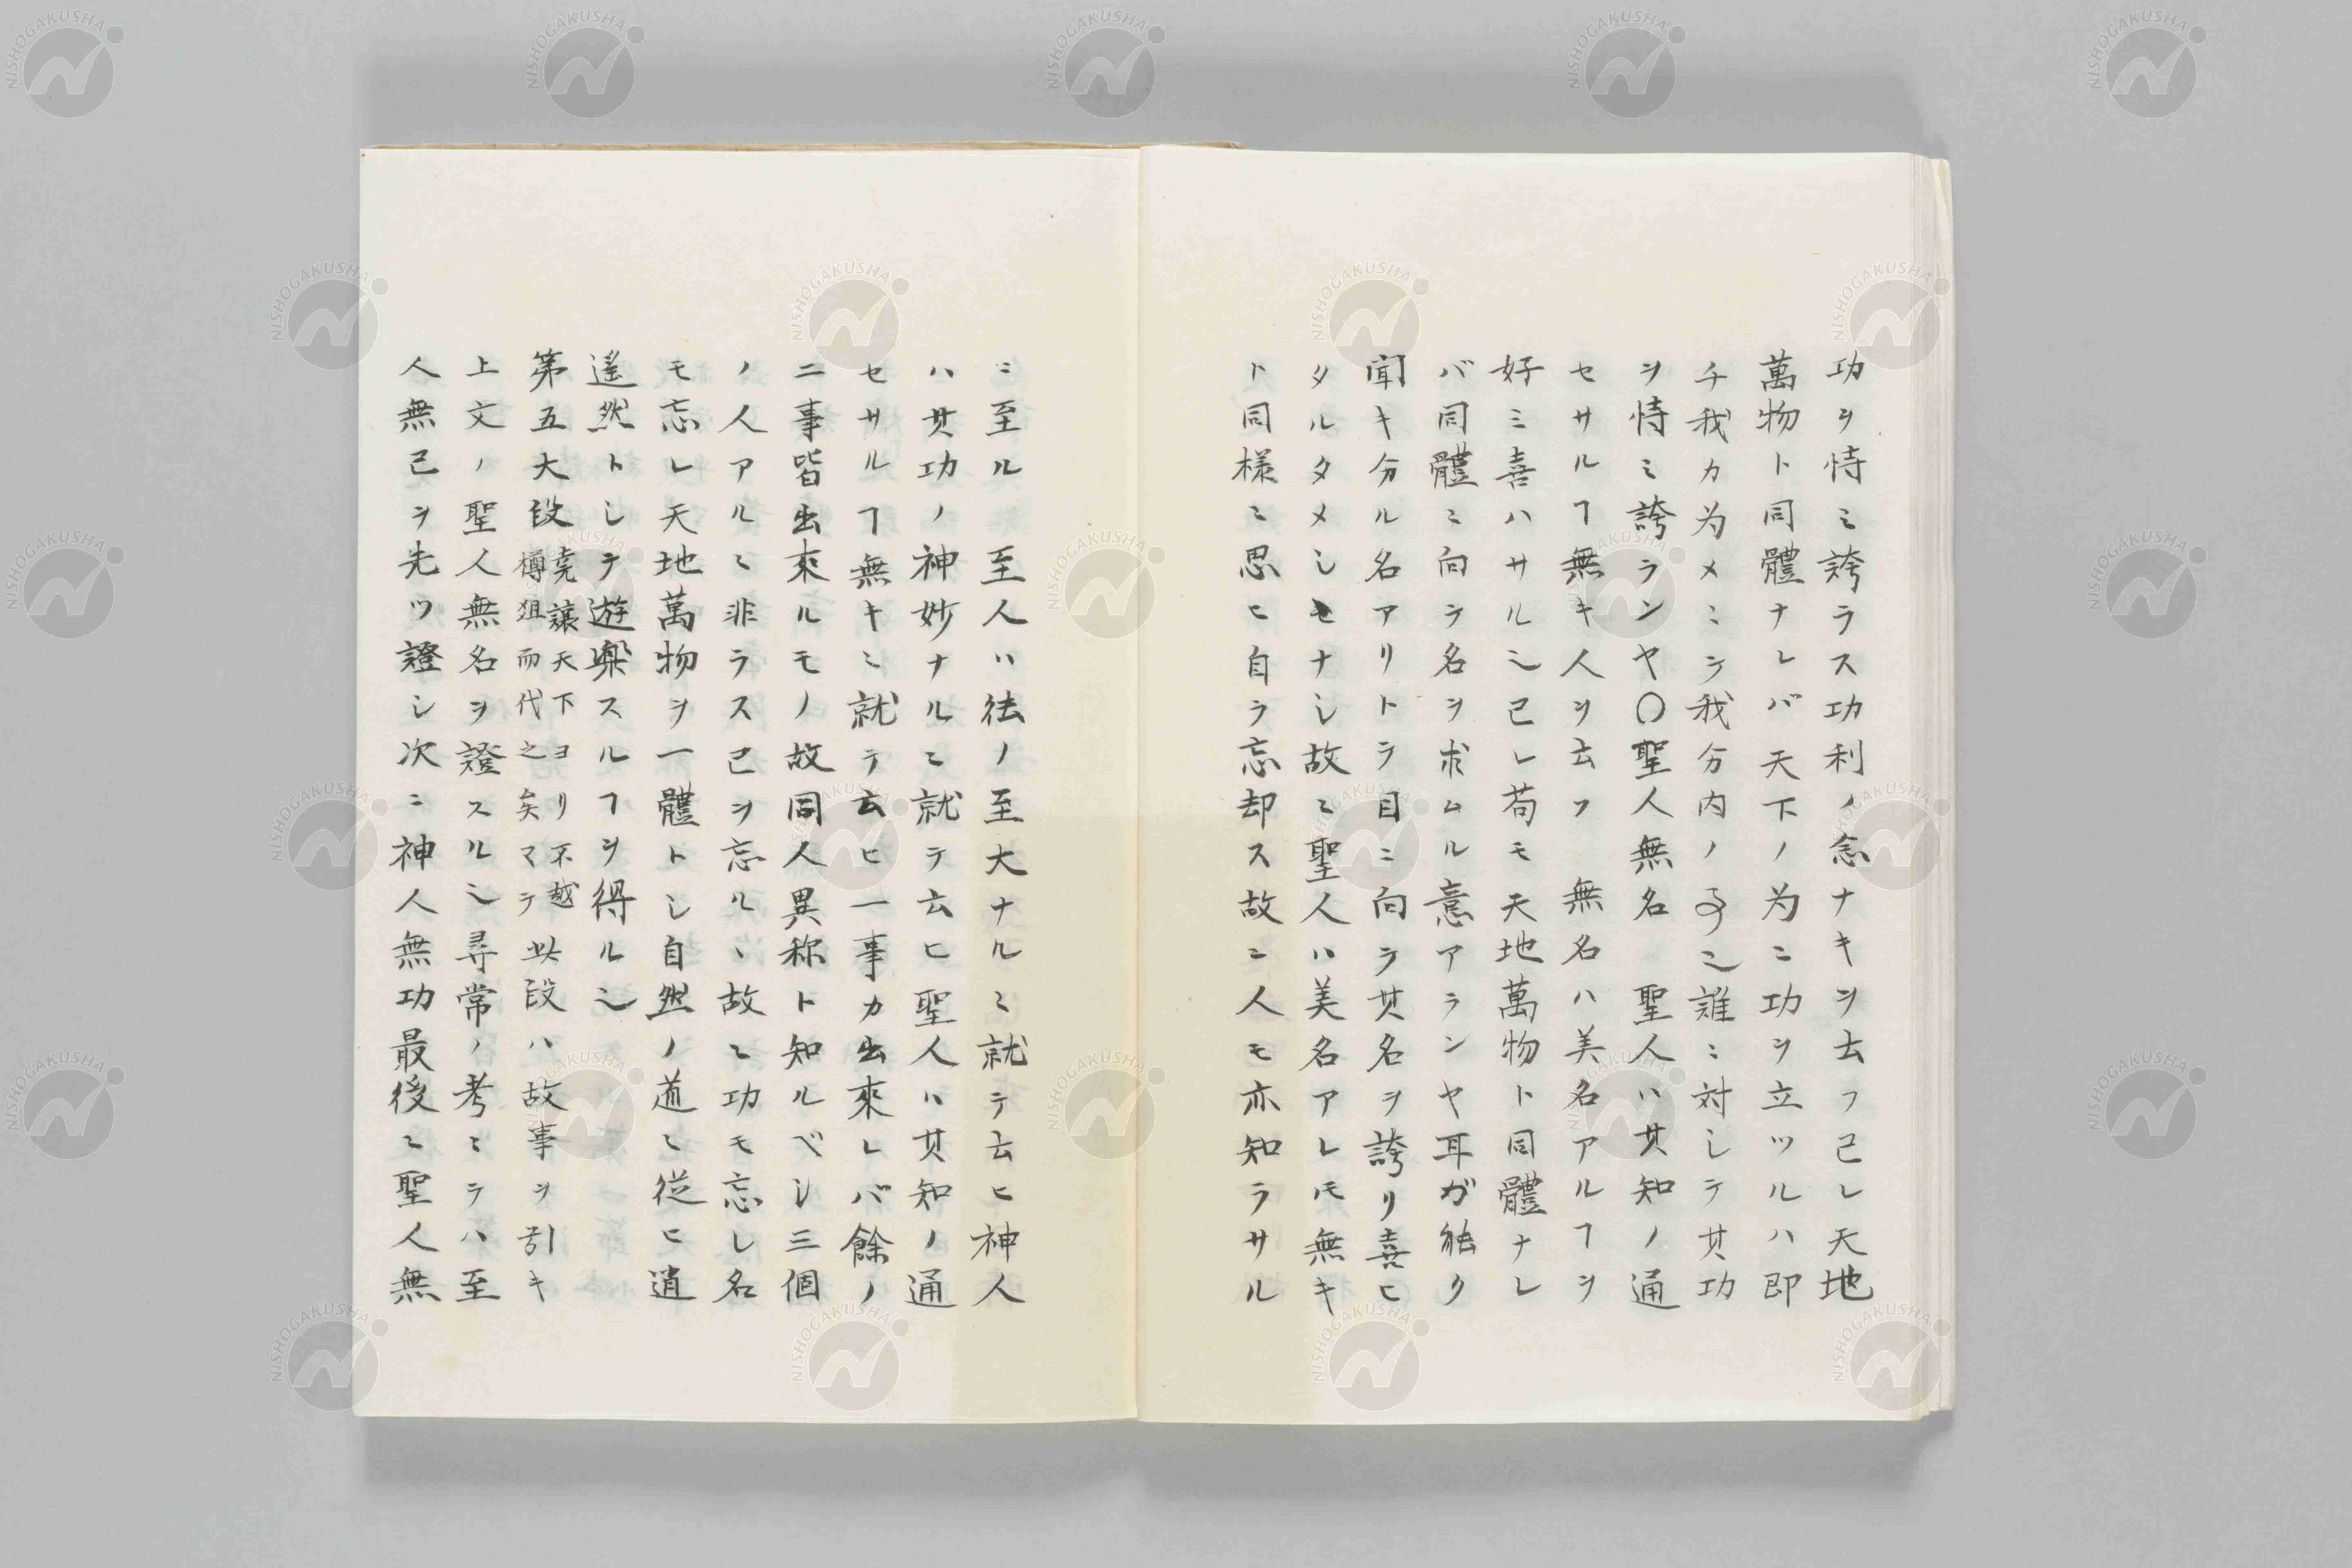 功ヲ恃ミ誇ラス功利ノ念ナキヲ云フ己レ天地
萬物ト同體ナレバ天下ノ为ニ功ヲ立ツルハ即
チ我カ为メニシテ我分内ノ事也誰ニ対シテ其功
ヲ恃ミ誇ランヤ〇聖人無名 聖人ハ其知ノ通
セサルヿ無キ人ヲ云フ 無名ハ美名アルヿヲ
好ミ喜ハサル也己レ苟モ天地萬物ト同體ナレ
バ同體ニ向テ名ヲ求ムル意アランヤ耳ガ能ク
聞キ分ル名アリトテ目ニ向テ其名ヲ誇リ喜ヒ
タルタメシモナシ故ニ聖人ハ美名アレ𪜈無キ
ト同様ニ思ヒ自ラ忘却ス故ニ人モ亦知ラサル
ニ至ル 至人ハ徳ノ至大ナルニ就テ云ヒ神人
ハ其功ノ神妙ナルニ就テ云ヒ聖人ハ其知ノ通
セサルヿ無キニ就テ云ヒ一事カ出來レバ餘ノ
ニ事皆出來ルモノ故同人異称ト知ルベシ三個
ノ人アルニ非ラス己ヲ忘ルヽ故ニ功モ忘レ名
モ忘レ天地萬物ヲ一體トシ自然ノ道ニ従ヒ逍
遙然トシテ遊樂スルヿヲ得ル也
第五大段 堯讓天下ヨリ不越樽俎而代之矣マテ 此段ハ故事ヲ引キ
上文ノ聖人無名ヲ證スル也尋常ノ考ニテハ至
人無己ヲ先ツ證シ次ニ神人無功最後ニ聖人無
NISHOGAKUSHA